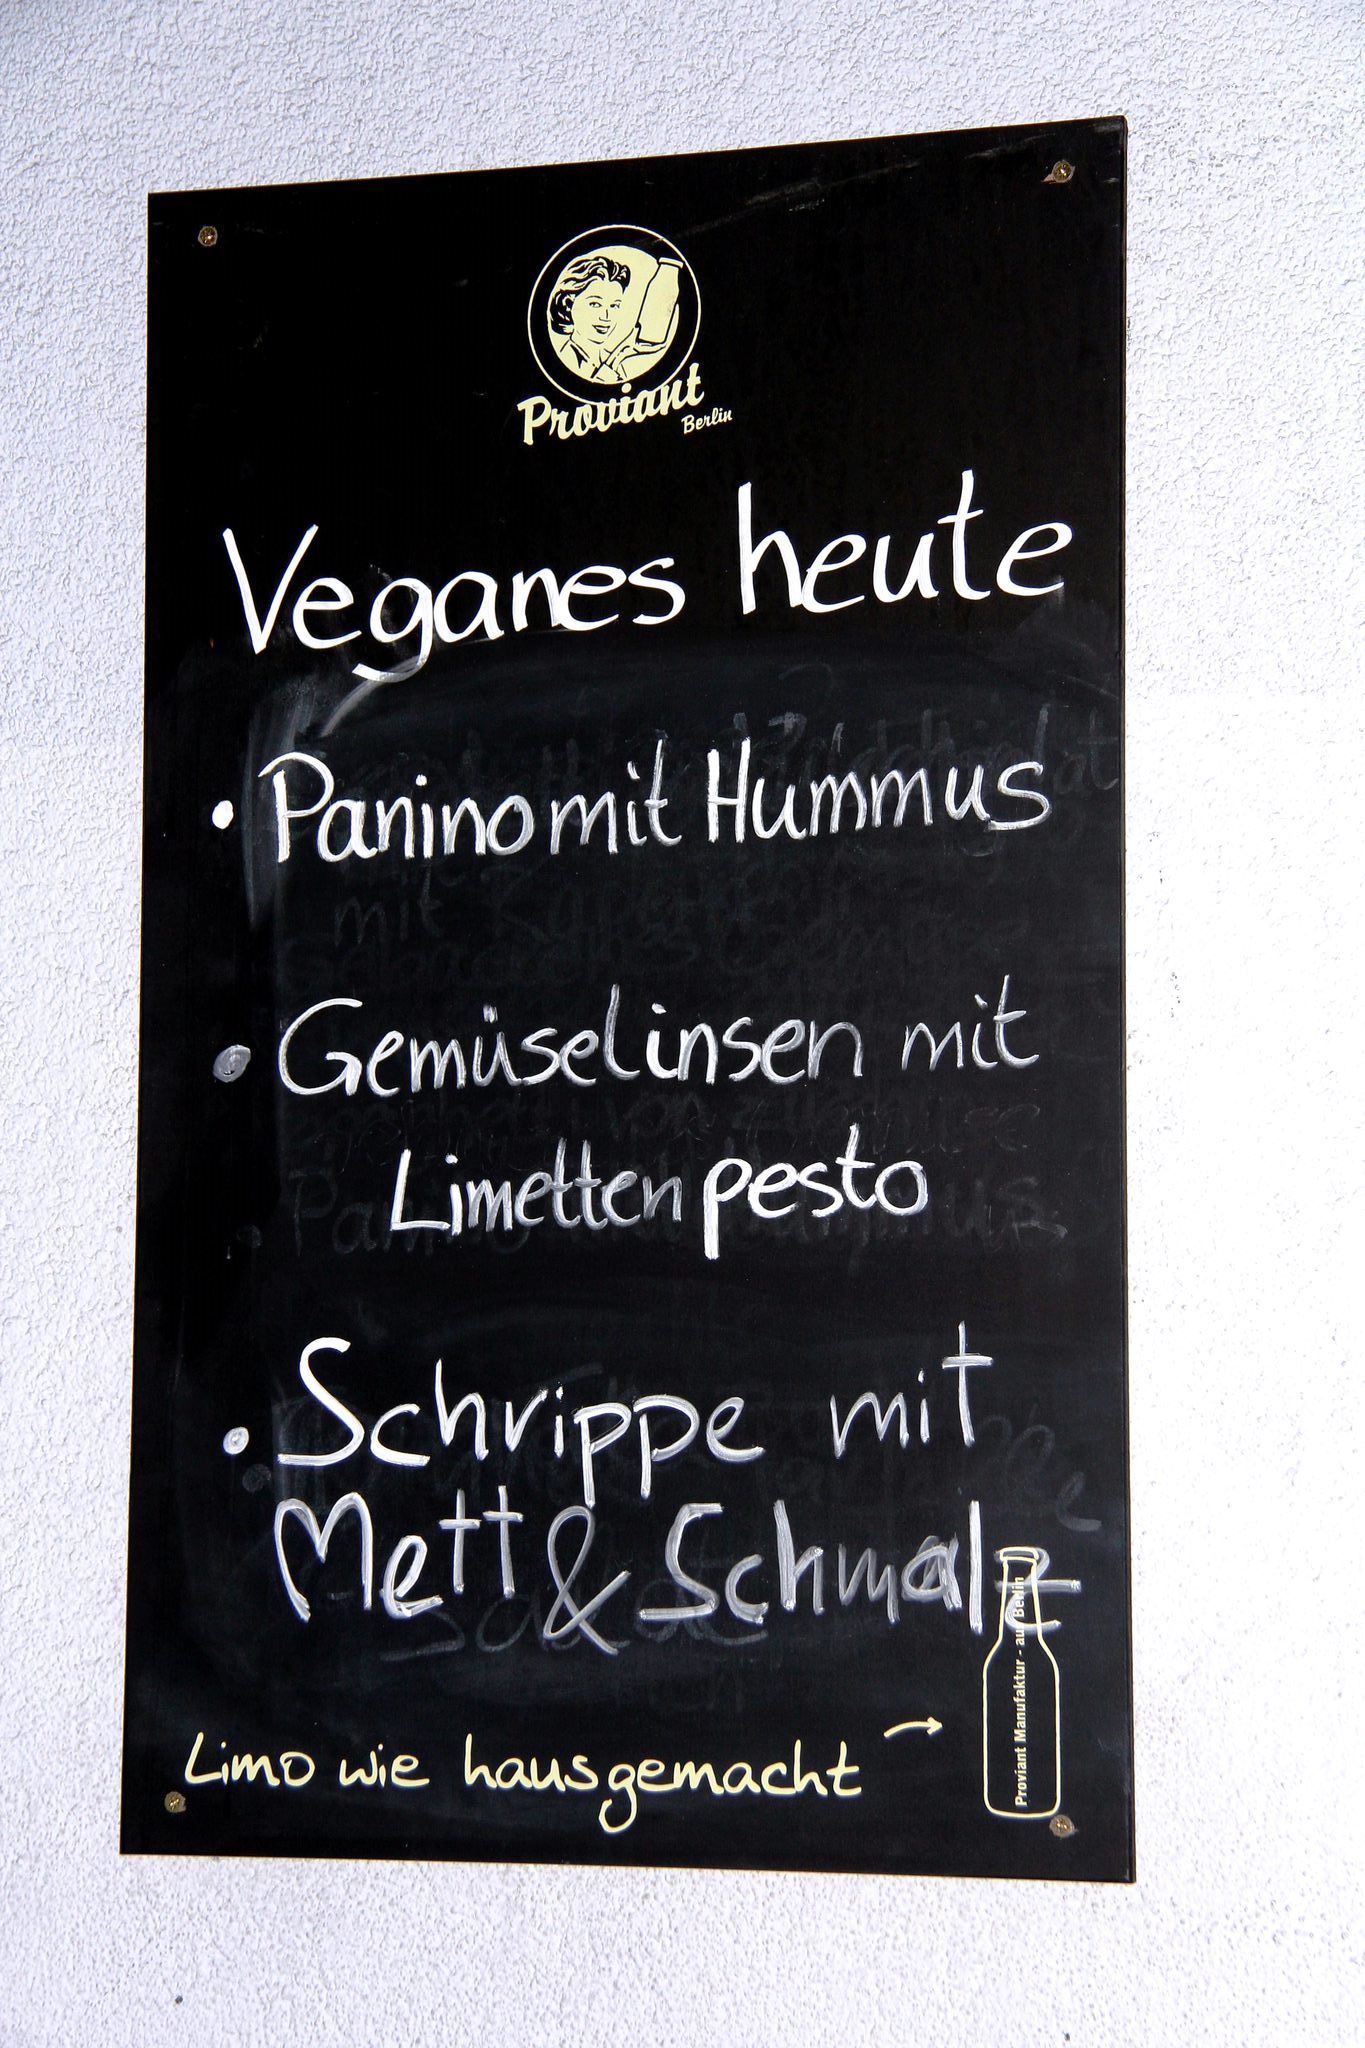 Proviant
Berlin
Veganes heute
• Panino mit Hummus
• Gemüselinsen mit
Limettenpesto
• Schrippe mit
Mett & Schmalz
Limo wie hausgemacht →
Proviant Manufaktur - aus Berlin